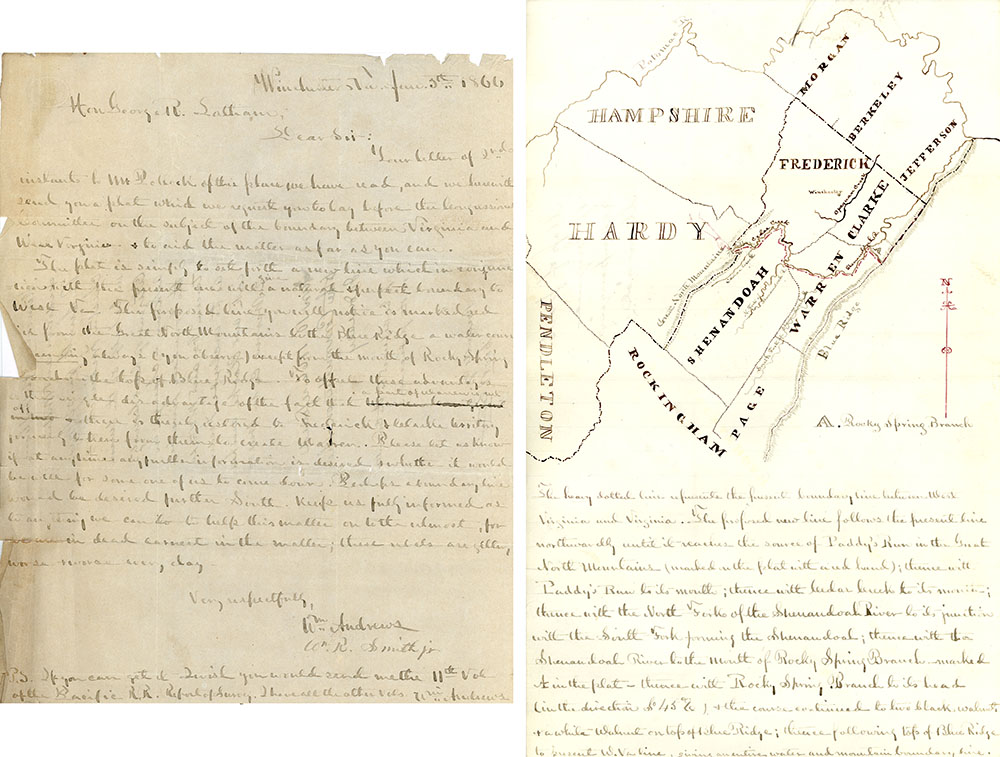 Winchester Va. June 5th 1866
Hon George R. Latham,
Dear Sir:
Your letter of 2nd
instant to Mr of this place we have read, and we herewith
send you a plat which we request you to lay before the Congressional
Committee on the subject of the boundary between Virginia and
West Virginia & to aid the matter as far as you can.
The plat is simply to set forth a new line which in conjunc
tion with the present one will give a natural & perfect boundary to
West Va. The proposed line you will notice is marked red
is from the Great North Mountains to the Blue Ridge a water course
always (you observe) except from the mouth of Rocky Spring
Branch to the top of Blue Ridge. To offset these advantages
the disadvantage of the fact that
there is thereby restored to Frederick & Clarke territory
formerly taken from them to create Warren. Please let us know
if at any time any further information is desired & whether it would
be well for some one of us to come down. Perhaps a boundary line
would be desired further South. Keep us fully informed as
to anything we can do to help this matter on to the utmost, for
we are in dead earnest in the matter; these rebels are getting
worse & worse every day -
Very respectfully,
Wm Andrews
Wm R. Smith jr
P.S. If you can get it I wish you would send me the 11th Vol
of the Pacific R.R. Report of Survey. I have all the other vols. Wm Andrews
Potomac R
MORGAN
HAMPSHIRE
BERKELEY
JEFFERSON
FREDERICK
Winchester
CLARKE
HARDY
Cedar Creek
Great North Mountains
SHENANDOAH
WARREN
A
Blue Ridge
N
PENDLETON
ROCKINGHAM
PAGE
A. Rocky Spring Branch
The heavy dotted line represents the present boundary line between West
Virginia and Virginia. The proposed new line follows the present line
northwardly until it reaches the source of Paddy's Run in the Great
North Mountains (marked on the plat with a red hand); thence with
Paddy's Run to its mouth; thence with Cedar Creek to its mouth;
thence with the North Fork of the Shenandoah River to its junction
with the South Fork forming the Shenandoah; thence with the
Shenandoah River to the mouth of Rocky Spring Branch marked
A in the plat - thence with Rocky Spring Branch to its head
(in the direction S 45° E) & the course continued to two black walnuts
& a white Walnut on top of Blue Ridge; thence following top of Blue Ridge
to present W.Va line, giving an entire water and mountain boundary line.